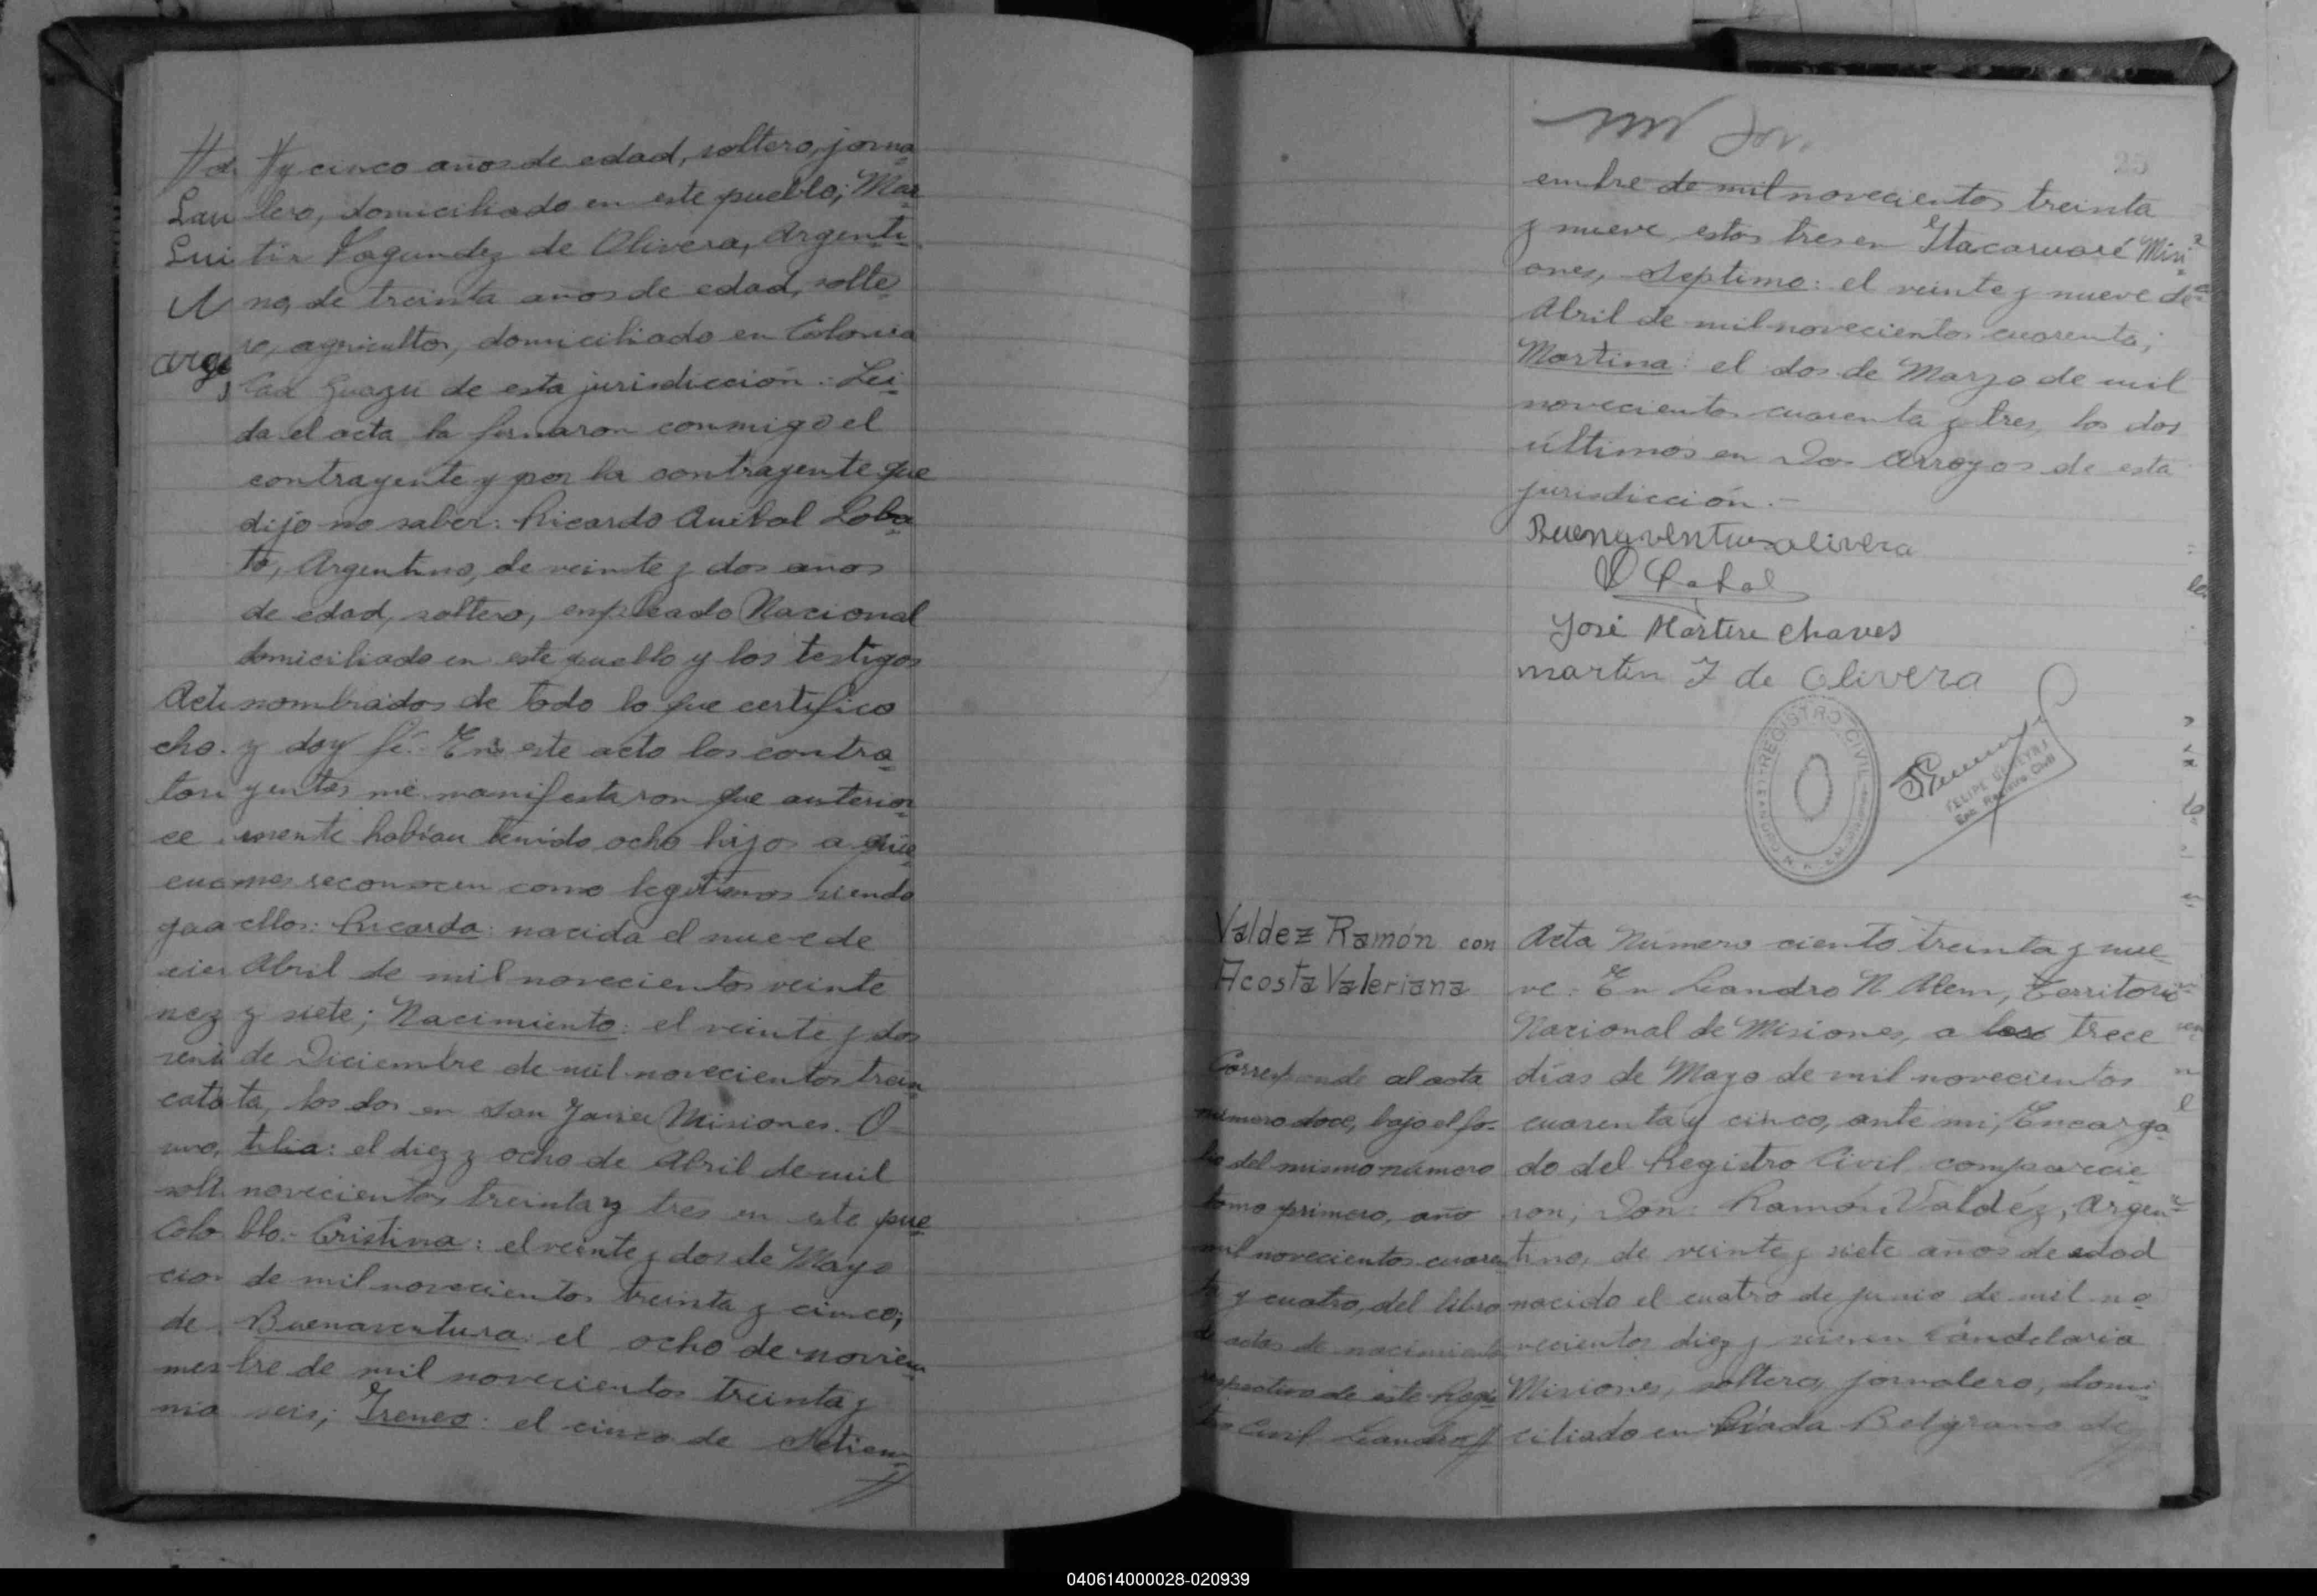 y cinco años de edad, soltero, jorna
lero, domiciliado en este pueblo; Mar
tin Fagundez de Olivera, Argenti
no, de treinta años de edad, solte
ro, agricultor, domiciliado en Colonia
Guazú de esta jurisdicción: Lei
da el acta la firmaron conmigo el
contrayente y por la contrayente que
dijo no saber: Ricardo Anibal Loba
to, Argentino, de veinte y dos años
de edad, soltero, empleado Nacional
domiciliado en este pueblo y los testigos
nombrados de todo lo que certifico
y doy fé.- En este acto los contra
yentes me manifestaron que anterior
mente habian tenido ocho hijos a quie
nes reconocen como legitimos siendo
ellos: Ricarda: nacida el nueve de
Abril de mil novecientos veinte
y siete; Nacimiento: el veinte y dos
de Diciembre de mil novecientos trein
ta, los dos en San Javier Misiones. O
tilia: el diez y ocho de Abril de mil
novecientos treinta y tres en este pue
blo.- Cristina: el veinte y dos de Mayo
de mil novecientos treinta y cinco;
Buenaventura: el ocho de noviem
bre de mil novecientos treinta y
seis; Ireneo: el cinco de Setiem
embre de mil novecientos treinta
y nueve, estos tres en Itacaruaré Misi
ones, Septimo: el veinte y nueve de
Abril de mil novecientos cuarenta;
Martina: el dos de Marzo de mil
novecientos cuarenta y tres, los dos
últimos en Dos Arroyos de esta
jurisdicción.-
Buenaventura olivera
José Martire Chaves
martin F de Olivera
REGISTRO CIVIL
FELIPE
Enc. Registro Civil
Valdez Ramón con
Acosta Valeriana
Corresponde al acta
número doce, bajo el fo-
lio del mismo número
tomo primero, año
mil novecientos cuaren
ta y cuatro, del libro
de actas de nacimiento
respectivo de este Regis
tro Civil Leandro
Acta Número ciento treinta y nue
ve: En Leandro N. Alem, Territorio
Nacional de Misiones, a los trece
días de Mayo de mil novecientos
cuarenta y cinco, ante mi, Encarga
do del Registro Civil comparecie
ron; Don: Ramón Valdéz, Argen
tino, de veinte y siete años de edad
nacido el cuatro de junio de mil no
vecientos diez y seis en Candelaria
Misiones, soltero, jornalero, domi
ciliado en Picada Belgrano de
040614000028-020939